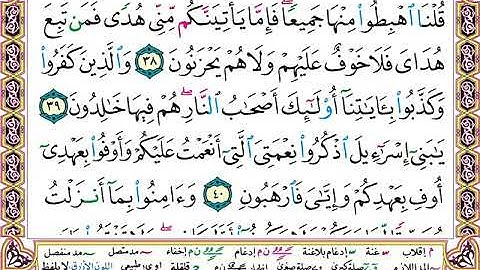 قُلْنَا ٱهْبِطُوا۟ مِنْهَا جَمِيعًا ۖ فَإِمَّا يَأْتِيَنَّكُم مِّنِّى هُدًى فَمَن تَبِعَ
هُدَاىَ فَلَا خَوْفٌ عَلَيْهِمْ وَلَا هُمْ يَحْزَنُونَ ٣٨ وَٱلَّذِينَ كَفَرُوا۟
وَكَذَّبُوا۟ بِـَٔايَـٰتِنَآ أُو۟لَـٰٓئِكَ أَصْحَـٰبُ ٱلنَّارِ ۖ هُمْ فِيهَا خَـٰلِدُونَ ٣٩
يَـٰبَنِىٓ إِسْرَٰٓءِيلَ ٱذْكُرُوا۟ نِعْمَتِىَ ٱلَّتِىٓ أَنْعَمْتُ عَلَيْكُمْ وَأَوْفُوا۟ بِعَهْدِىٓ
أُوفِ بِعَهْدِكُمْ وَإِيَّـٰىَ فَٱرْهَبُونِ ٤٠ وَءَامِنُوا۟ بِمَآ أَنزَلْتُ
م إقلاب غنة إدغام بلاغنة ن م إدغام ن م إخفاء مد متصل مد منفصل